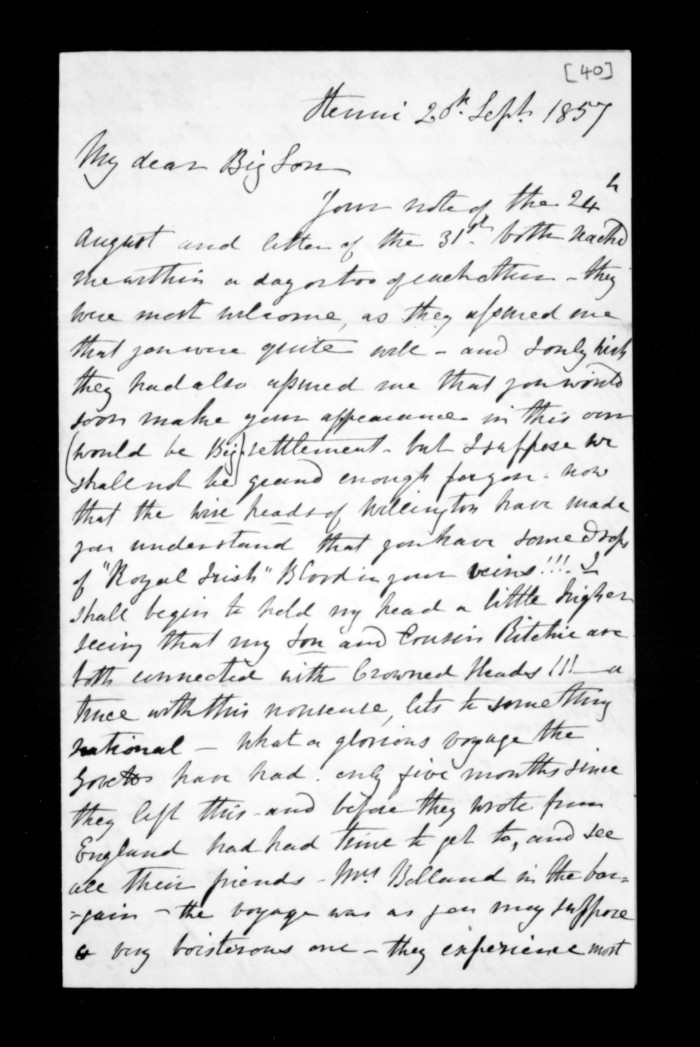 [40]
Henui 26th Septr 1857
My dear Big Son
Your note of the 24th
August and letter of the 31st both reach'd
me within a day or two of each other - they
were most welcome, as they assured me
that you were quite well - and I only wish
they had also assured me that you would
soon make your appearance in this our
(would be Big) settlement - but I suppose we
shall not be grand enough for you - now
that the wise heads of Wellington have made
you understand that you have some drops
of "Royal Irish" Blood in your veins!!! I
shall begin to hold my head a little higher
seeing that my Son and Cousin Ritchie are
both connected with Crowned Heads!!! - a
truce with this nonsense, lets to something
rational - what a glorious voyage the
have had. only five months since
they left this - and before they wrote from
England had had time to get to, and see
all their friends - Mrs Bolland in the bar=
=gain - the voyage was as you may suppose
a very boisterous one - they experience most